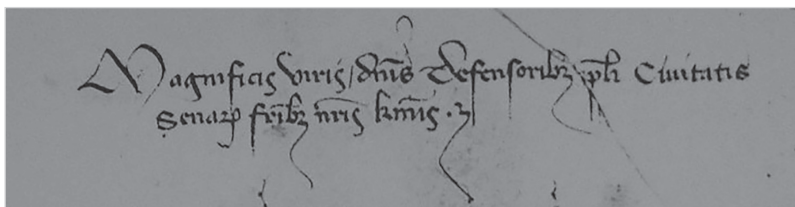 Magnificis viris, dn̄is defensoribꝫ pl̄i Civitatis
Senaꝝ fr̄ibꝫ nr̄is kmīs · ⁊